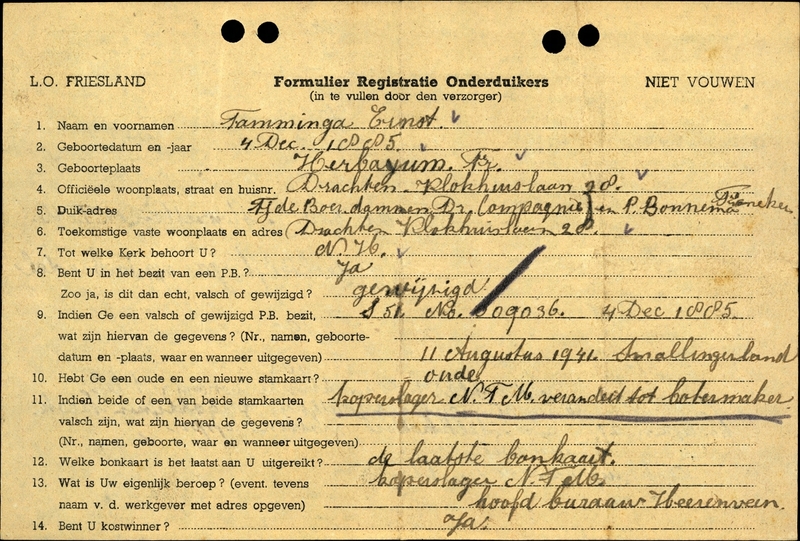 L.O. FRIESLAND Formulier Registratie Onderduikers NIET VOUWEN
(in te vullen door den verzorger)
1. Naam en voornamen Tamminga Ernst.
2. Geboortedatum en -jaar 4 Dec. 1885.
3. Geboorteplaats Herbayum. Fr.
4. Officiëele woonplaats, straat en huisnr. Drachten. Klokhuislaan 28.
5. Duik-adres Tj de Boer. dammen Dr. Compagnie) en P. Bonnema Franeker
6. Toekomstige vaste woonplaats en adres Drachten Klokhuislaan 28.
7. Tot welke Kerk behoort U? N. H.
8. Bent U in het bezit van een P.B.? Ja
Zoo ja, is dit dan echt, valsch of gewijzigd? gewijzigd
9. Indien Ge een valsch of gewijzigd P.B. bezit, S 51. No. 009036. 4 Dec 1885.
wat zijn hiervan de gegevens? (Nr., namen, geboorte-
datum en -plaats, waar en wanneer uitgegeven) 11 Augustus 1941. Smallingerland
10. Hebt Ge een oude en een nieuwe stamkaart? oude
11. Indien beide of een van beide stamkaarten koperslager N.T.M. veranderit tot botermaker.
valsch zijn, wat zijn hiervan de gegevens?
(Nr., namen, geboorte, waar en wanneer uitgegeven)
12. Welke bonkaart is het laatst aan U uitgereikt? de laatste bonkaart.
13. Wat is Uw eigenlijk beroep? (event. tevens koperslager N.T.M.
naam v. d. werkgever met adres opgeven) hoofd buraau Heerenveen.
14. Bent U kostwinner? Ja.